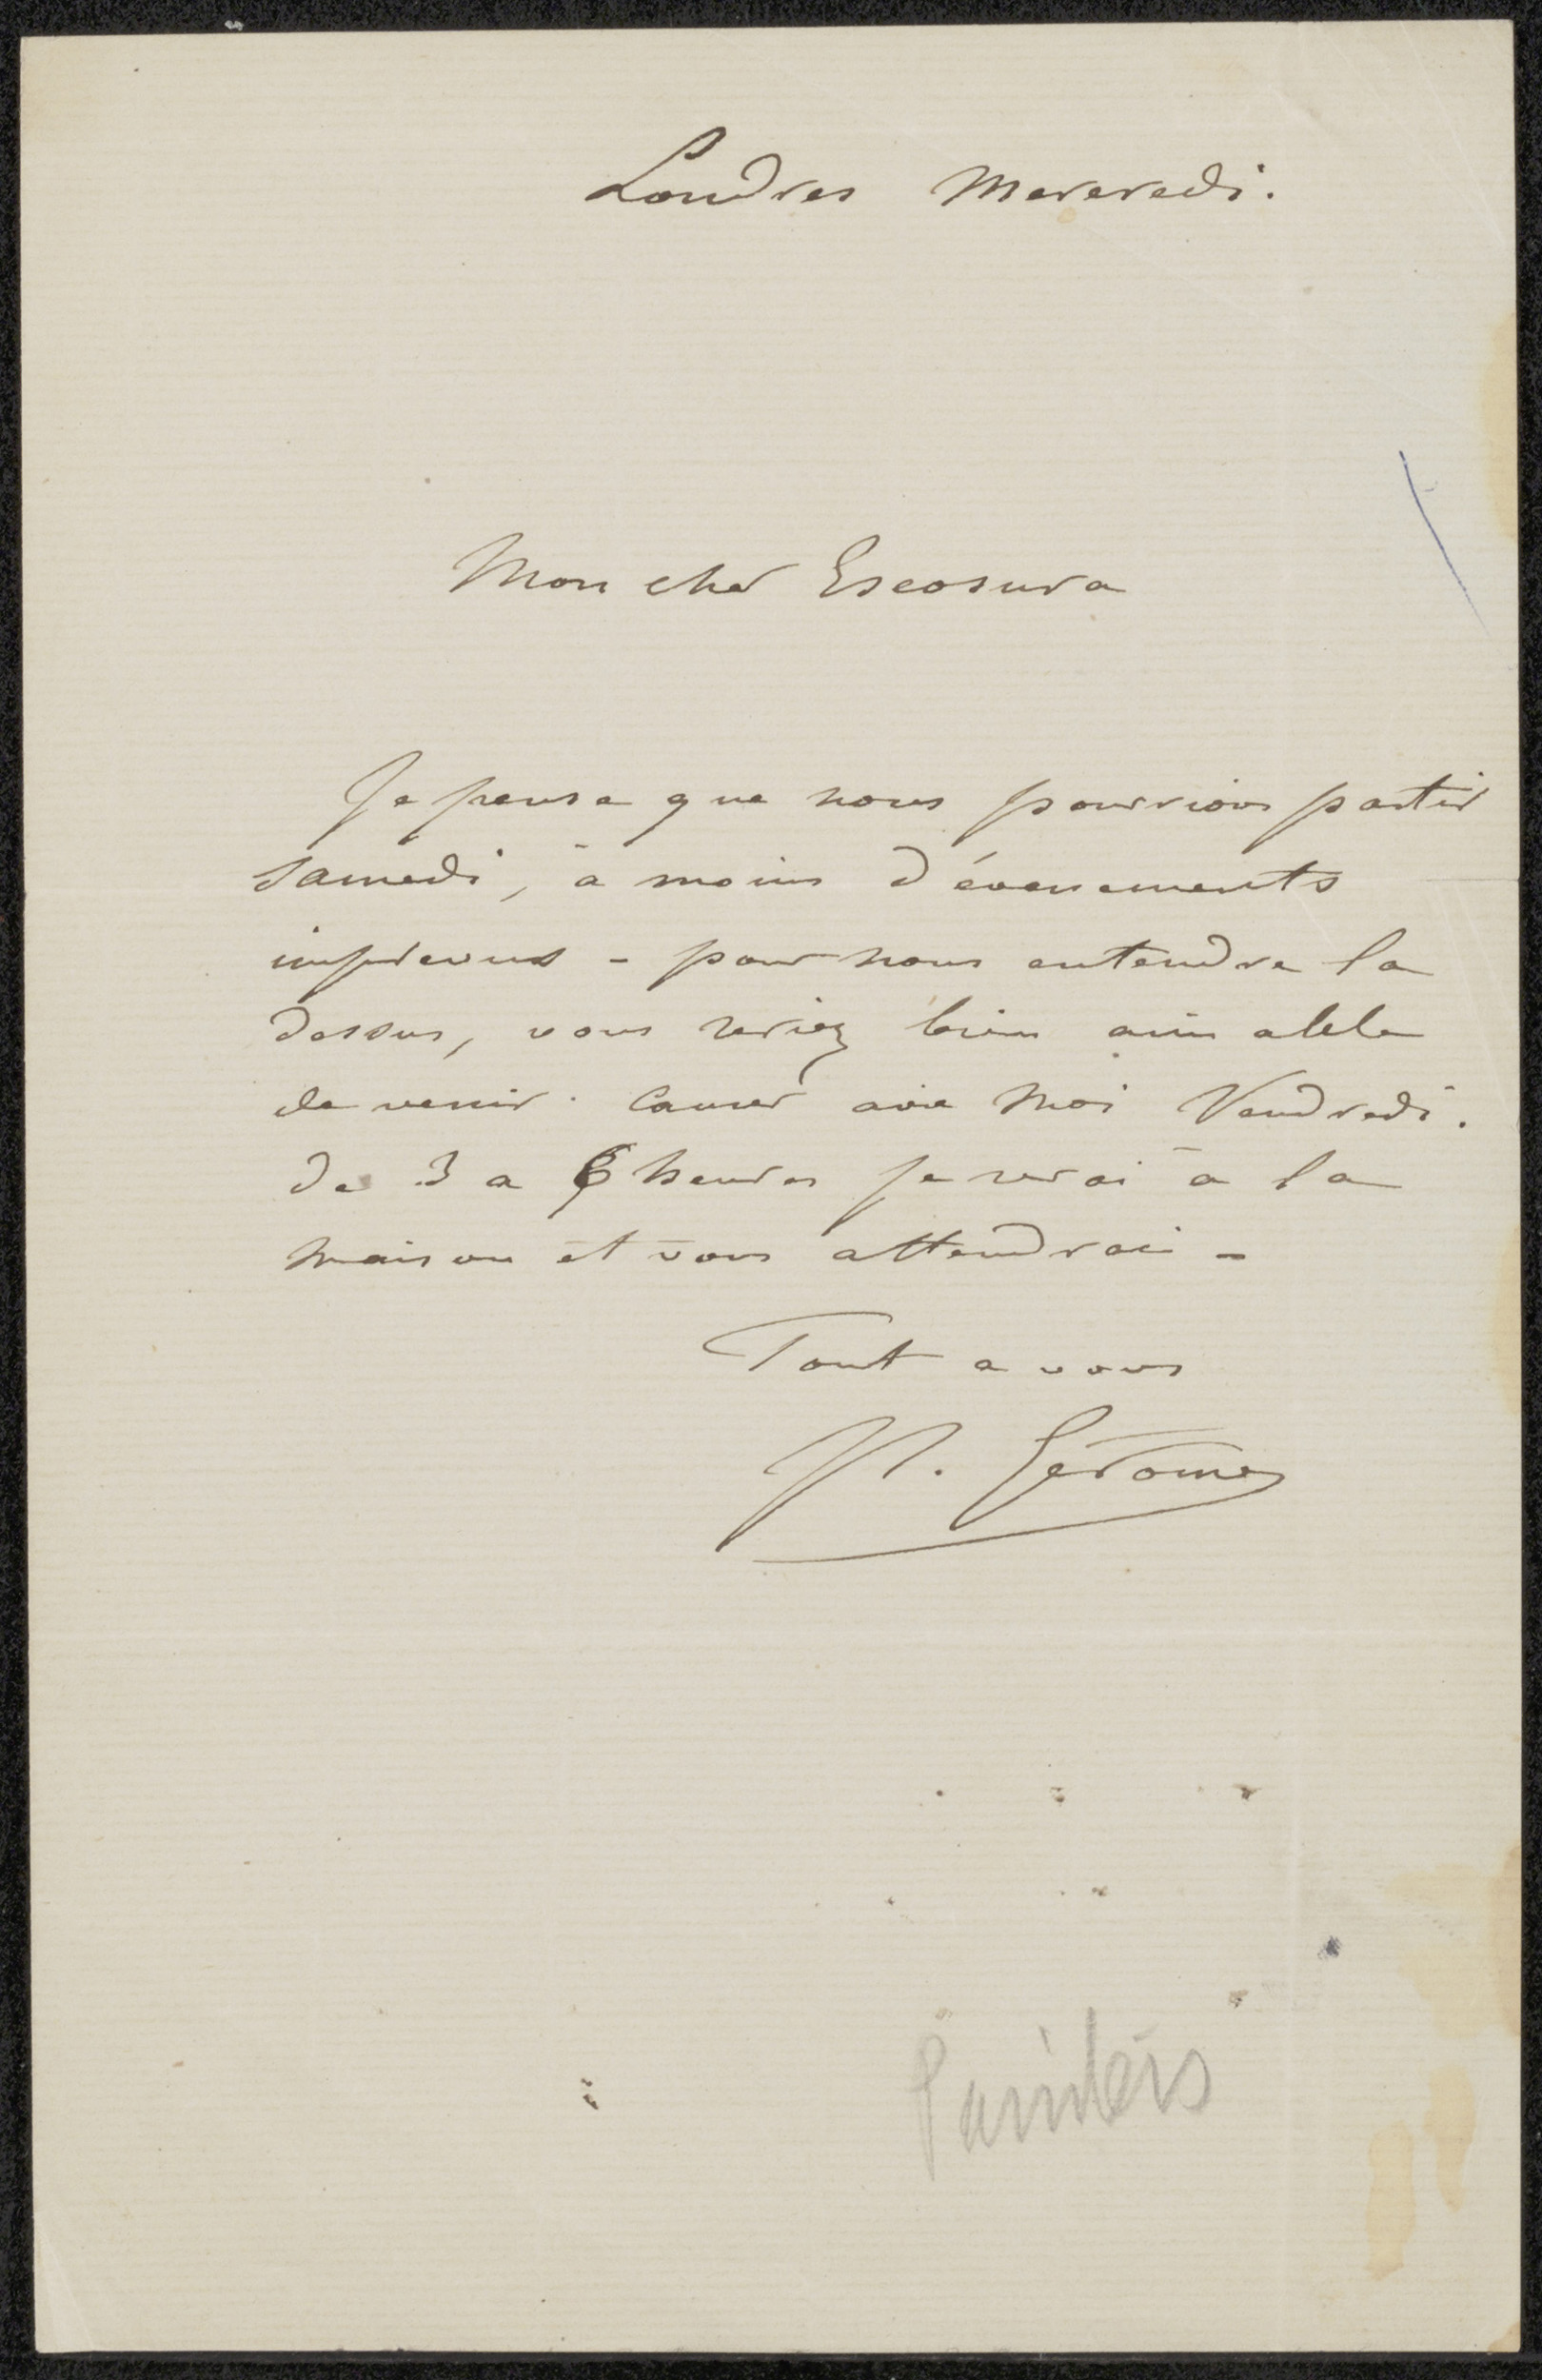 Londres Mercredi.
Mon cher Escosura
Je pense que nous pourrions partir
samedi, à moins d'évenements
imprevus - pour nous entendre la
dessus, vous seriez bien aimable
de venir causer avec moi Vendredi.
de 3 a 6 heures je serai à la
maison et vous attendrai -
Tout a vous
JL. Gérome
Painters